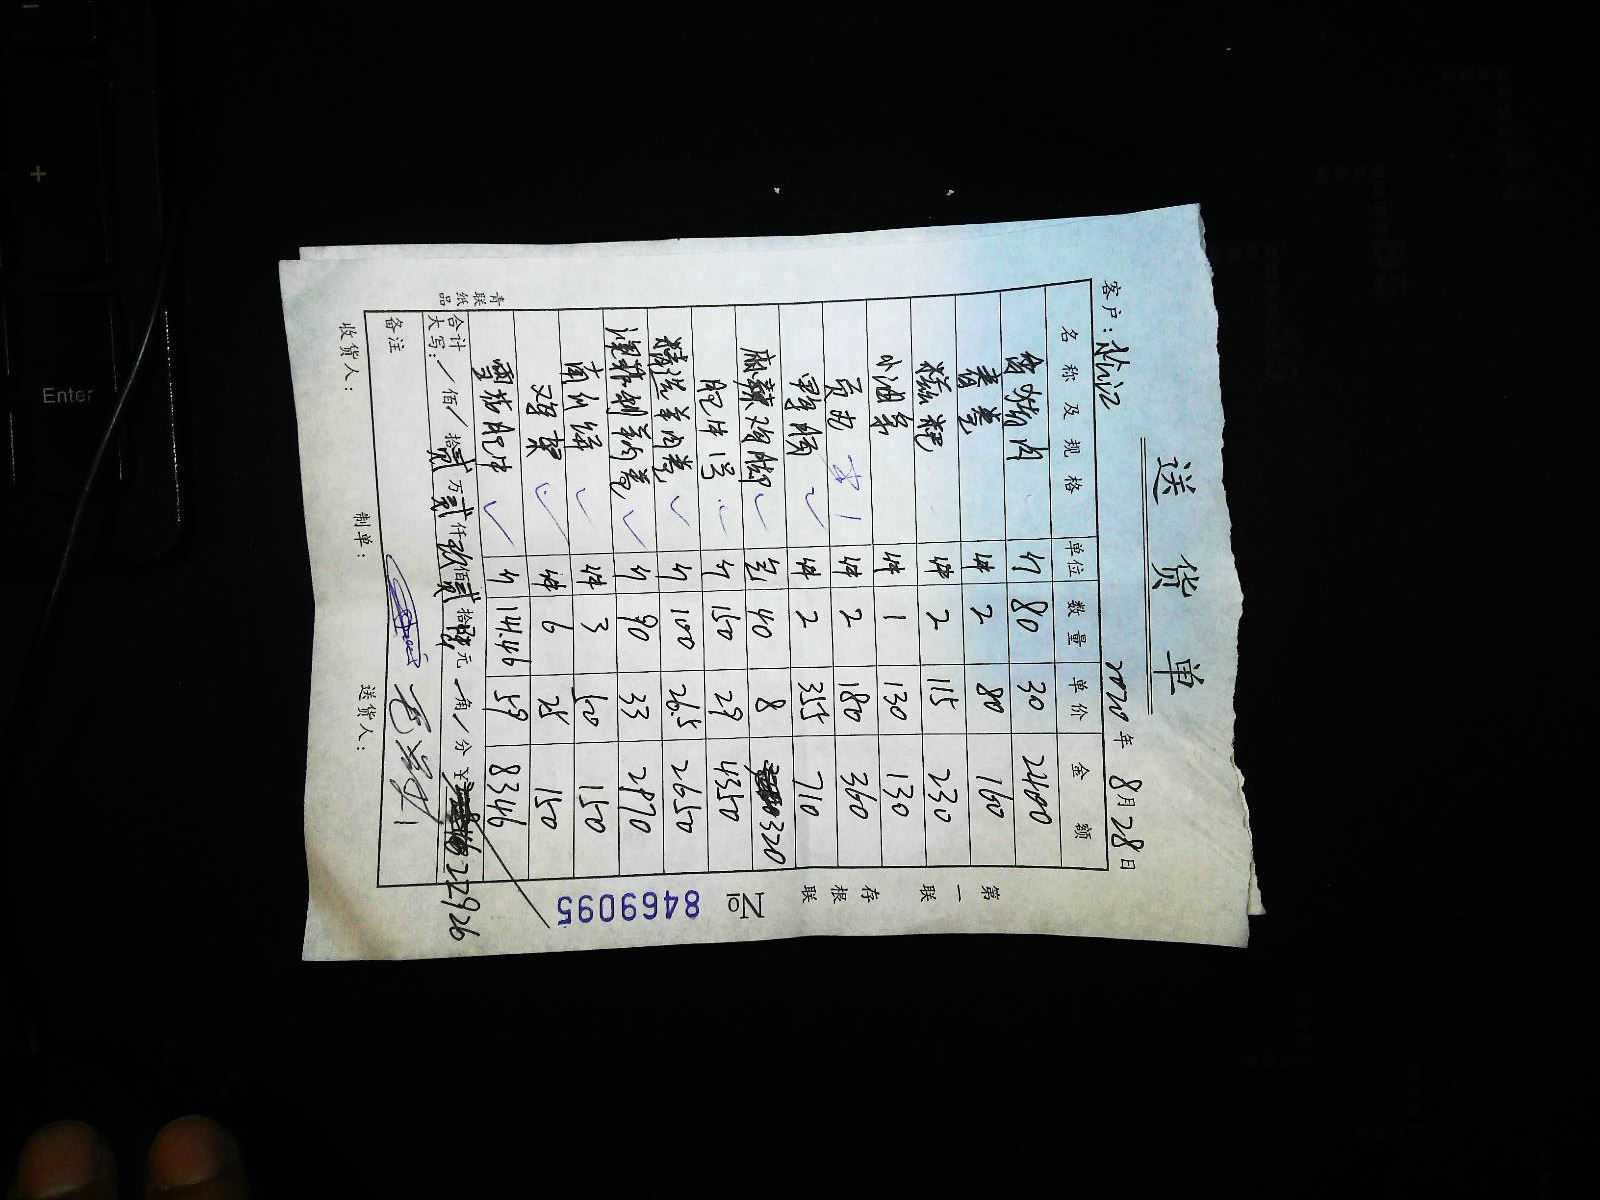 送货单
客户: 2020年8月28日
名称及规格 单位 数量 单价 金额
烤肉 斤 80 30 2400
件 2 80 160
糍粑 件 2 115 230
小油条 件 1 130 130
件 2 180 360
鸭肠 件 2 355 710
鸡脚 包 40 8 320
肥牛1号 斤 150 29 4350
精选羊肉卷 斤 100 26.5 2650
斤 90 33 2970
南瓜饼 件 3 50 150
鸡架 件 6 25 150
雪花肥牛 斤 141.46 59 8346
合计大写: / 佰 / 拾贰万贰仟玖佰贰拾陆元 角 / 分 ¥ 22926
备注
收货人: 制单: 送货人:
第一联 存根联
№ 8469095
青联纸品
+
Enter